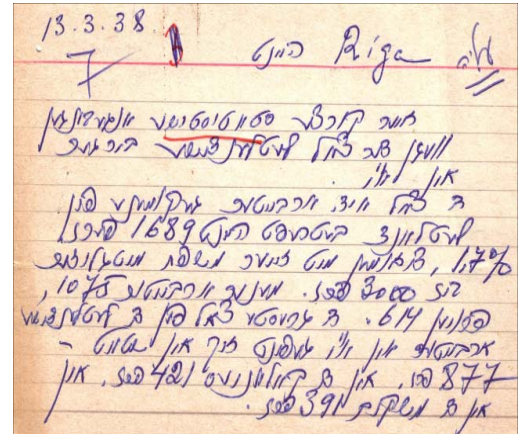 13.3.38.
עליה Riga היינט
7
זייער קורצע סטאטיסטישע אנגעבונגען
וועגן דער צאל לעטלענדישע בירגער
אין א״י.
ד צאל איד. ארבעטער געקומענע פון
לעטלאנד באטרעפט היינט 1689 פערז.
1,7%, צוזאמען מיט זייער משפחה מיטגלידער
ביז 3000 פערז. מענער ארבעטער 1075,
פרויען 614. ד גרעסטע צאל פון ד לעטלענדישע
ארבעטער אין א״י געפינט זיך אין שטאט –
877 פערז, אין ד קאלאניעס 421 פערז, און
אין ד משקים 391 פערז.